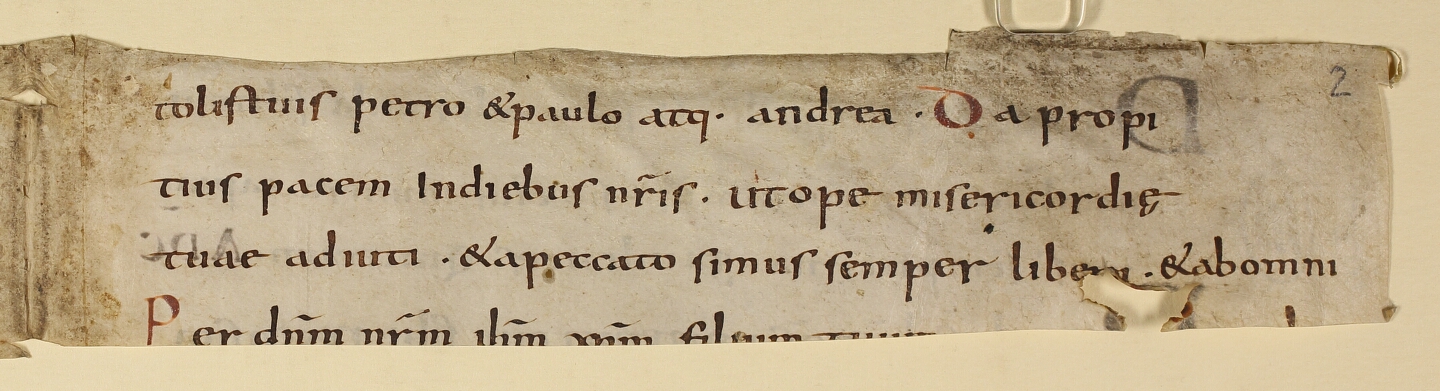 tolis tuis petro & paulo atq· andrea · Da propi
2
tius pacem In diebus nr̄is · Ut ope misericordię
tuae aduiti · & a peccato simus semper liberi · & ab omni
Per dn̄m nr̄m ih̄m xp̄m filium tuum